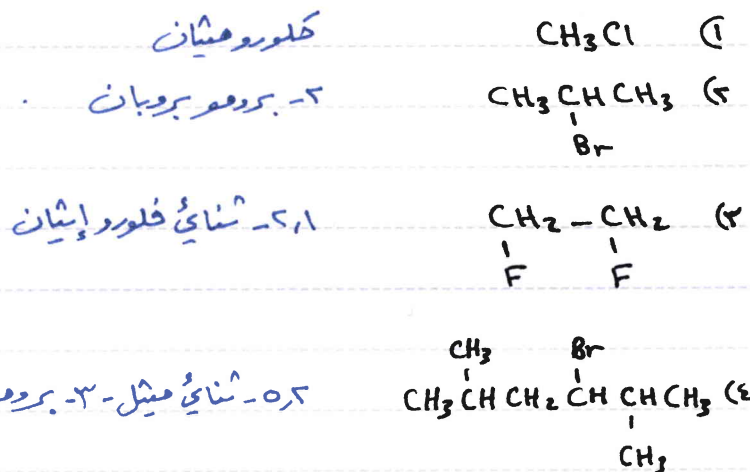 ١) CH3Cl كلوروميثان
٢) CH3CHCH3 ٢- بروموبروبان
Br
٣) CH2-CH2 ٢,١- ثنائي فلورو إيثان
F F
CH3 Br
٤) CH3CHCH2CHCHCH3 ٥,٢- ثنائي ميثيل-٣- برومو
CH3